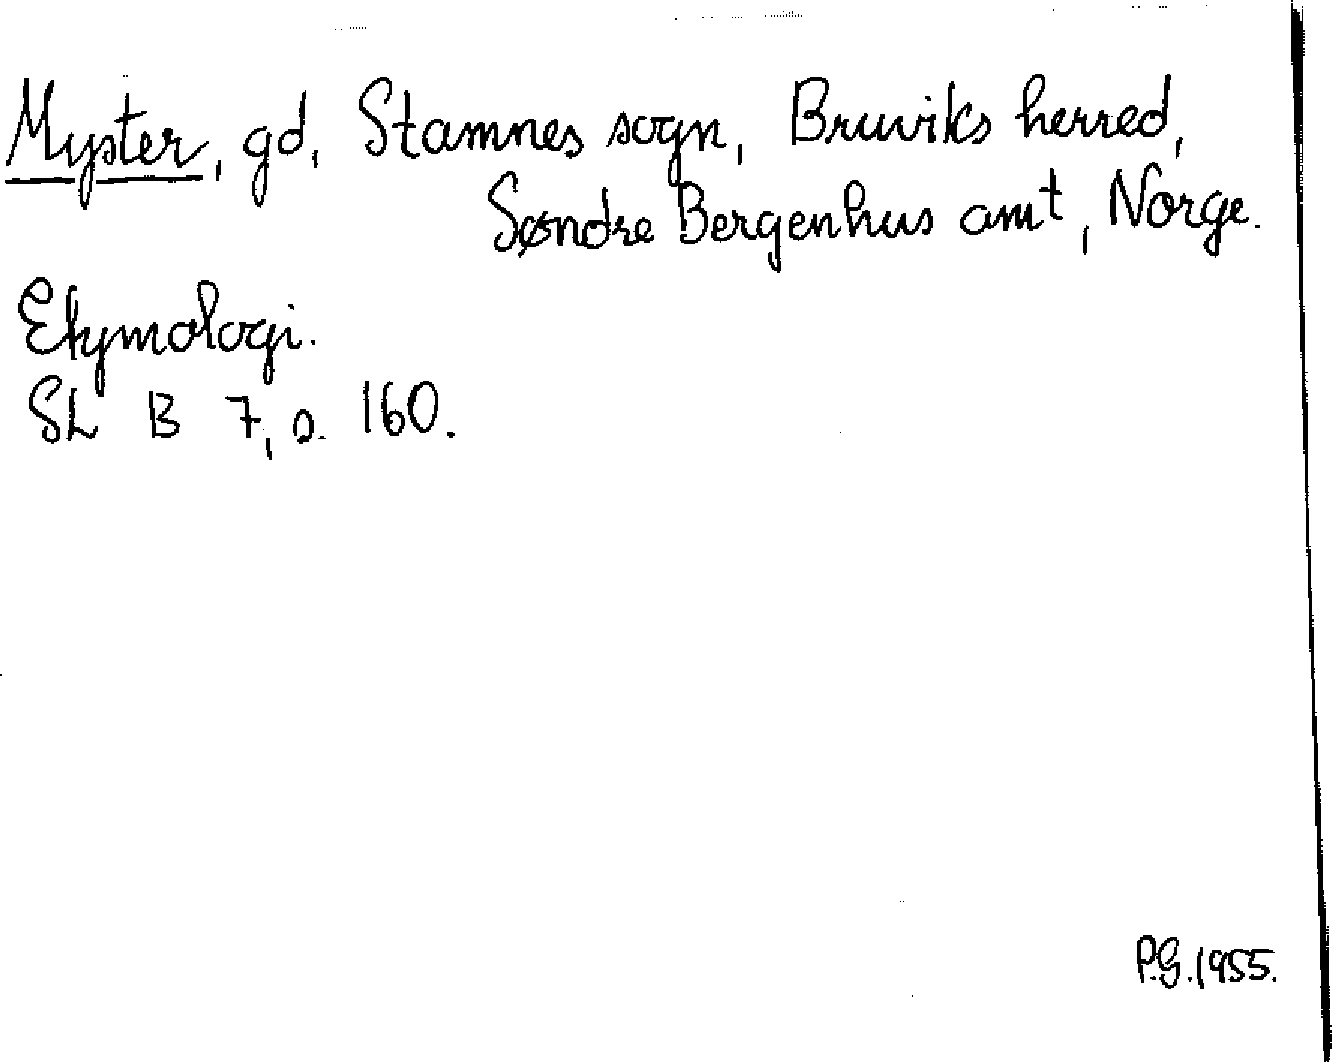 Myster, gd, Stamnes sogn, Bruviks herred,
Søndre Bergenhus amt, Norge.
Etymologi.
SL B 7, s. 160.
P.G. 1955.